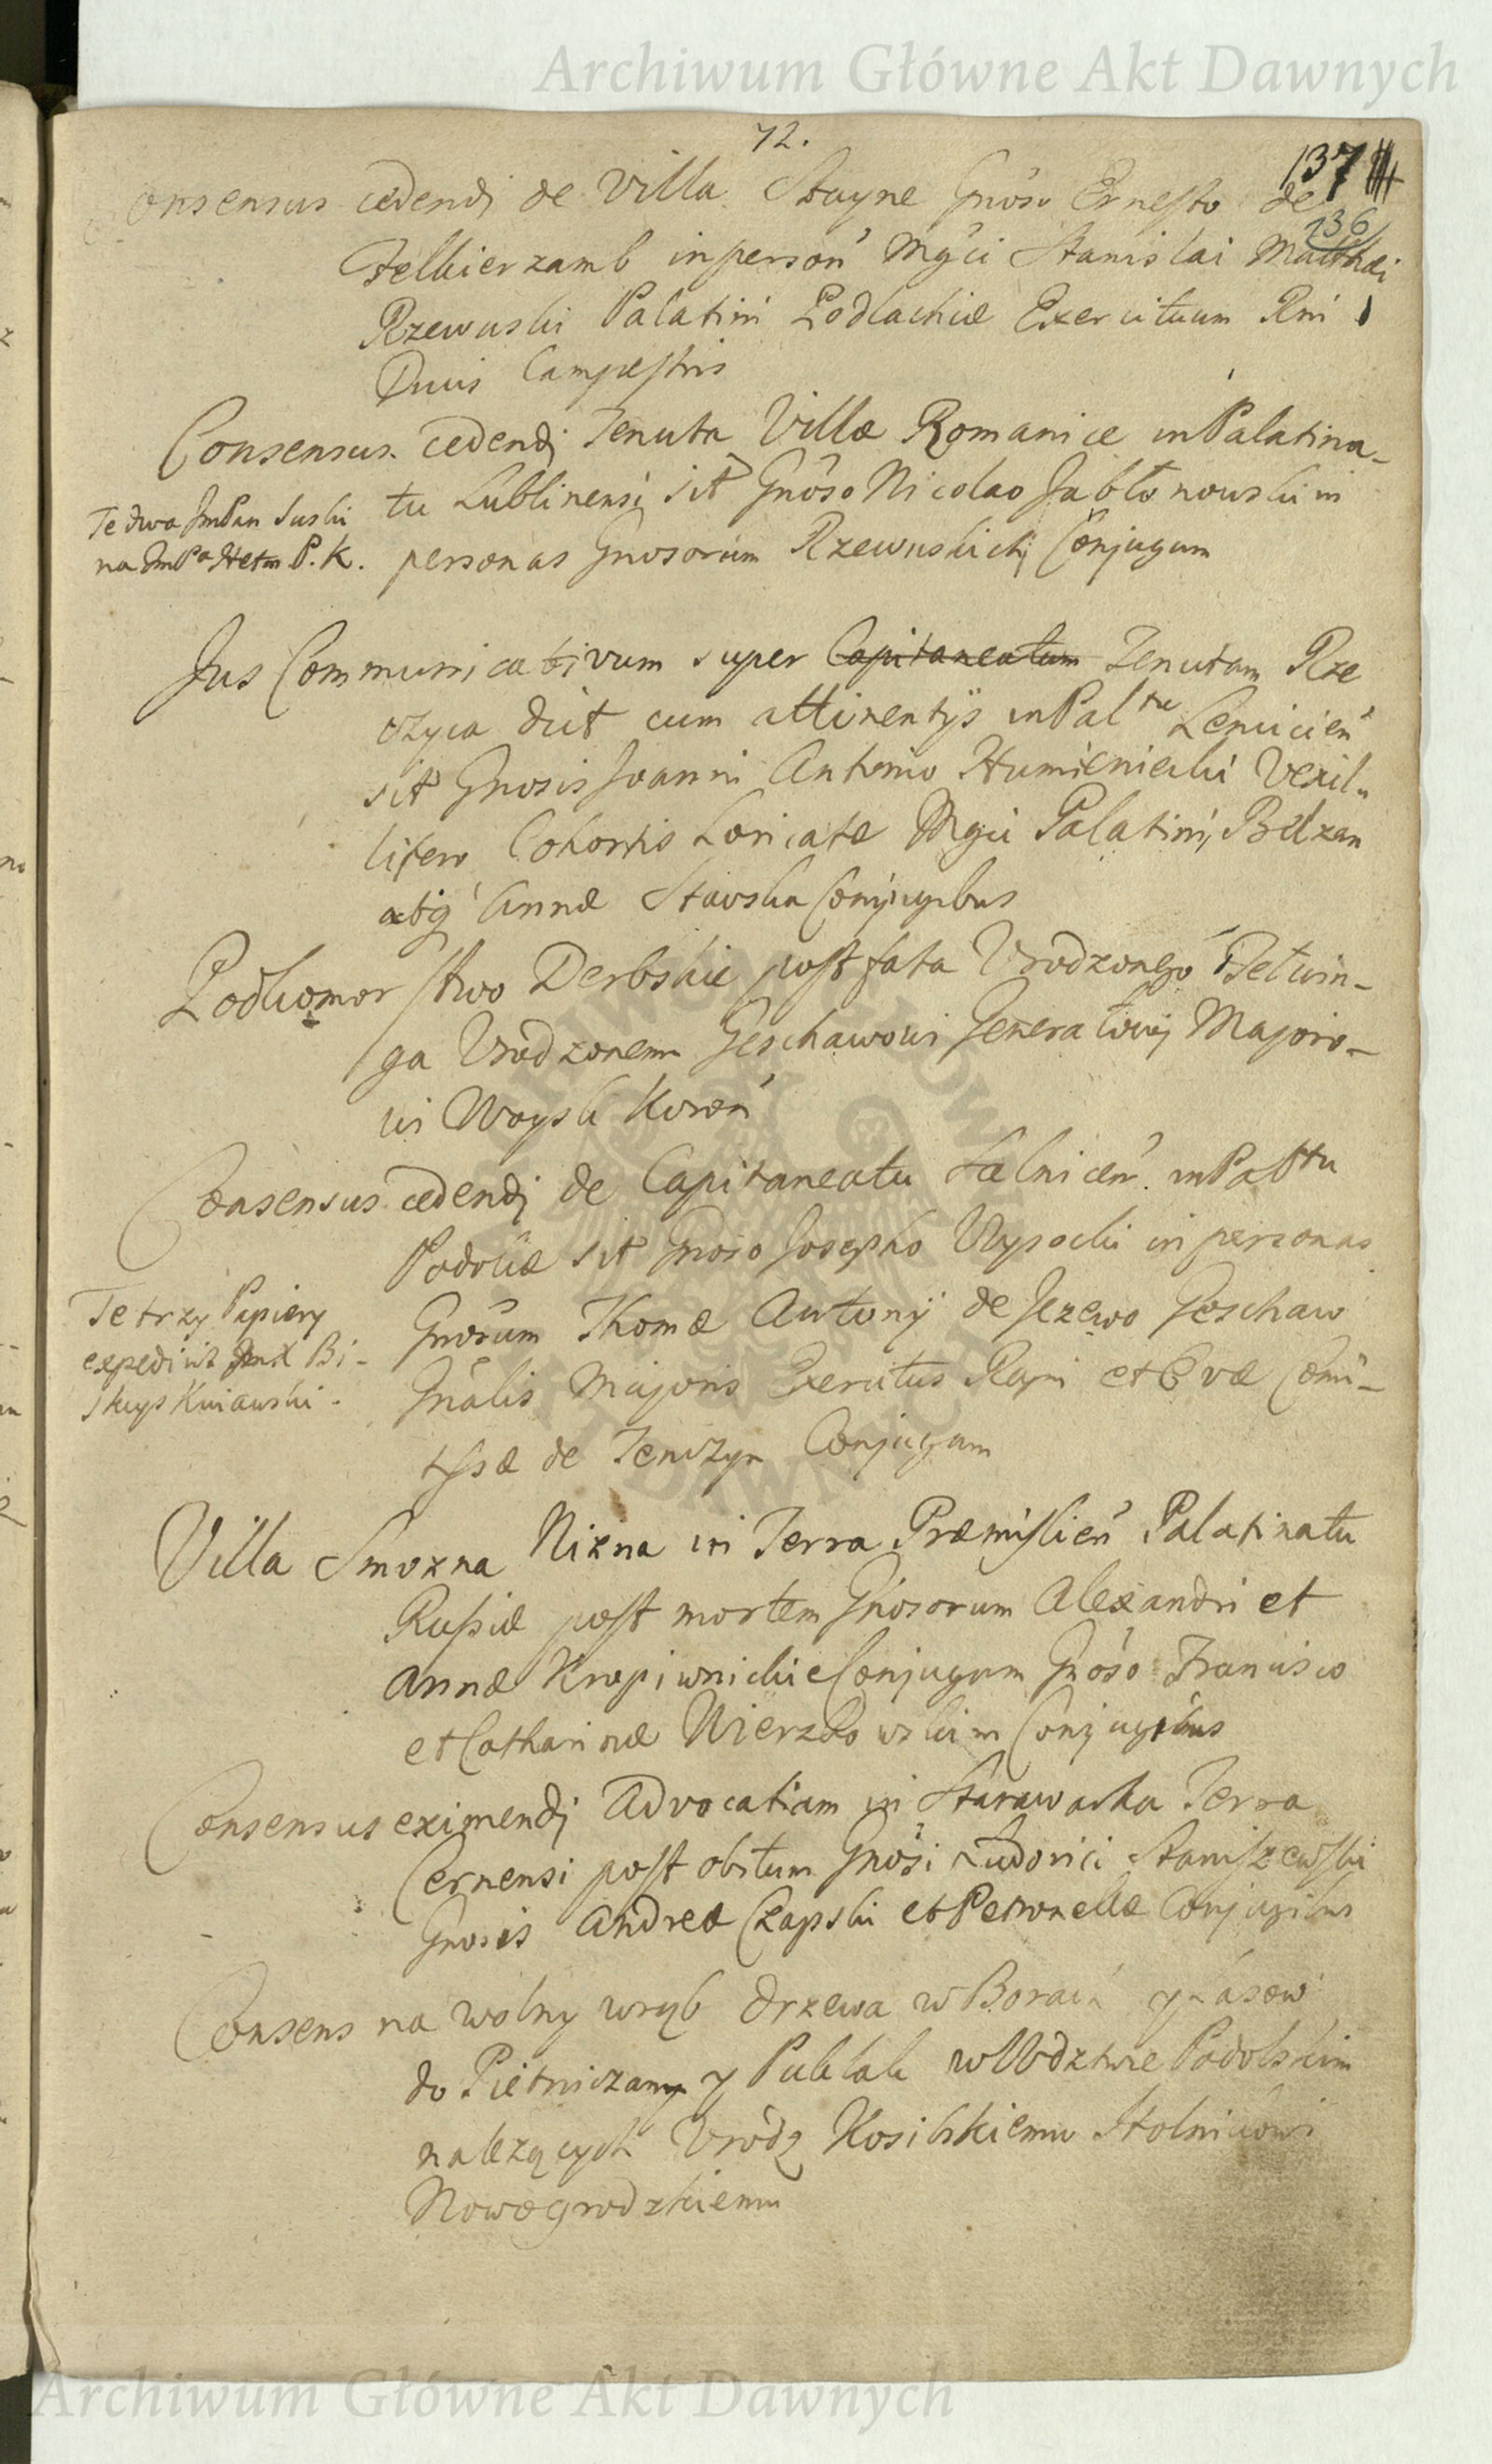 Archiwum Główne Akt Dawnych
72.
137
136
Consensus cedendi de Villa Stayne Gnoso Ernesto de
Felkierzamb in person Mgci Stanislai Matthæi
Rzewuski Palatini Podlachiæ Exercituum Rni
Ducis Campestris
Consensus cedendi Tenuta Villæ Romanice in Palatina-
tu Lublinensi sit Gnoso Nicolao Jabłonowski in
personas Gnosorum Rzewuskich Conjugum
Te dwa JmPan Suski
na JmPa Hetm P. K.
Jus Communicativum super Capitaneatum Tenutam Rze
czyca dict cum attinentijs in Pal tu Lencicien
sit Gnosis Joanni Antonio Humieniecki Vexil-
lifero Cohortis Loricatæ Mgci Palatini Belzen
atq Annæ Stawska Conjugibus
Podkomorstwo Derbskie post fata Urodzonego Tetwin-
ga Urodzonemu Geschawowi Generałowi Majoro-
wi Woysk Koron
Consensus cedendi de Capitaneatu Salnicen. in Paltu
Podoliæ sit Gnoso Josepho Wysocki in personas
Gnorum Thomæ Antonij de Jezewo Goschaw
Gnalis Majoris Exercitus Regni et Evæ Comi-
tissæ de Tenczyn Conjugum
Te trzy Papiery
expediit JmX Bi-
skup Kuiawski.
Villa Smozna Nizna in Terra Præmislien Palatinatu
Russiæ post mortem Gnosorum Alexandri et
Annæ Kropiwnickie Conjugum Gnoso Francisco
et Catharinæ Wierzbowskim Conjugibus
Consensus eximendi Advocatiam in Starawaska Terra
Cernensi post obitum Gnosi Ludovici Staniszewski
Gnosis Andreæ Czapski et Petronellæ Conjugibus
Consens na wolny wrąb drzewa w Borach y Lasow
do Pietniczany y Puklak w Wdztwie Podolskim
nalezących Urodz Kosilskiemu Stolnikowi
Nowogrodzkiemu
Archiwum Główne Akt Dawnych